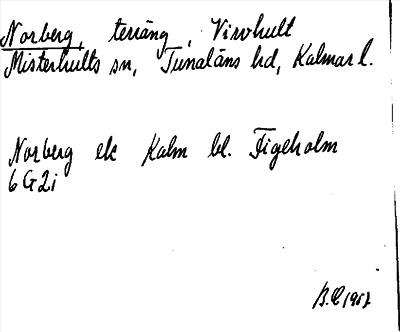 Norberg, terräng, Virvhult
Misterhults sn, Tunaläns hd, Kalmar l.
Norberg ek Kalm bl. Figeholm
6G2i